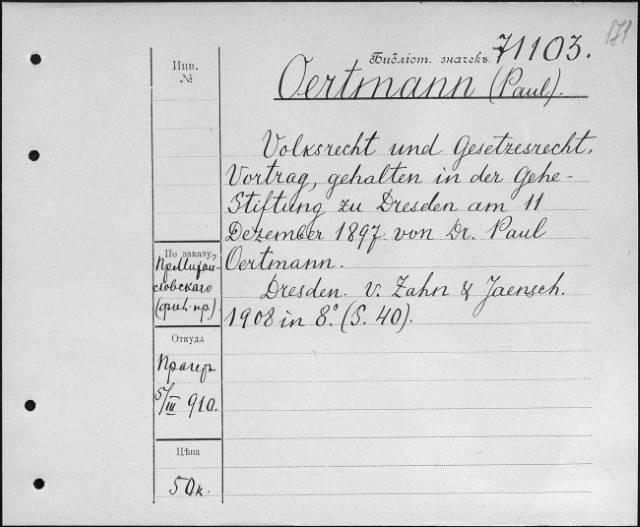 171
Библіот. значекъ. 71103.
Инв.
№
Oertmann (Paul).
Volksrecht und Gesetzesrecht.
Vortrag, gehalten in der Gehe-
Stiftung zu Dresden am 11
Dezember 1897 von Dr. Paul
Oertmann.
Dresden. v. Zahn & Jaensch.
1908 in 8.° (S. 40).
По заказу
словскаго
Откуда
Прагеръ
5/III 910.
Цѣна
50к.